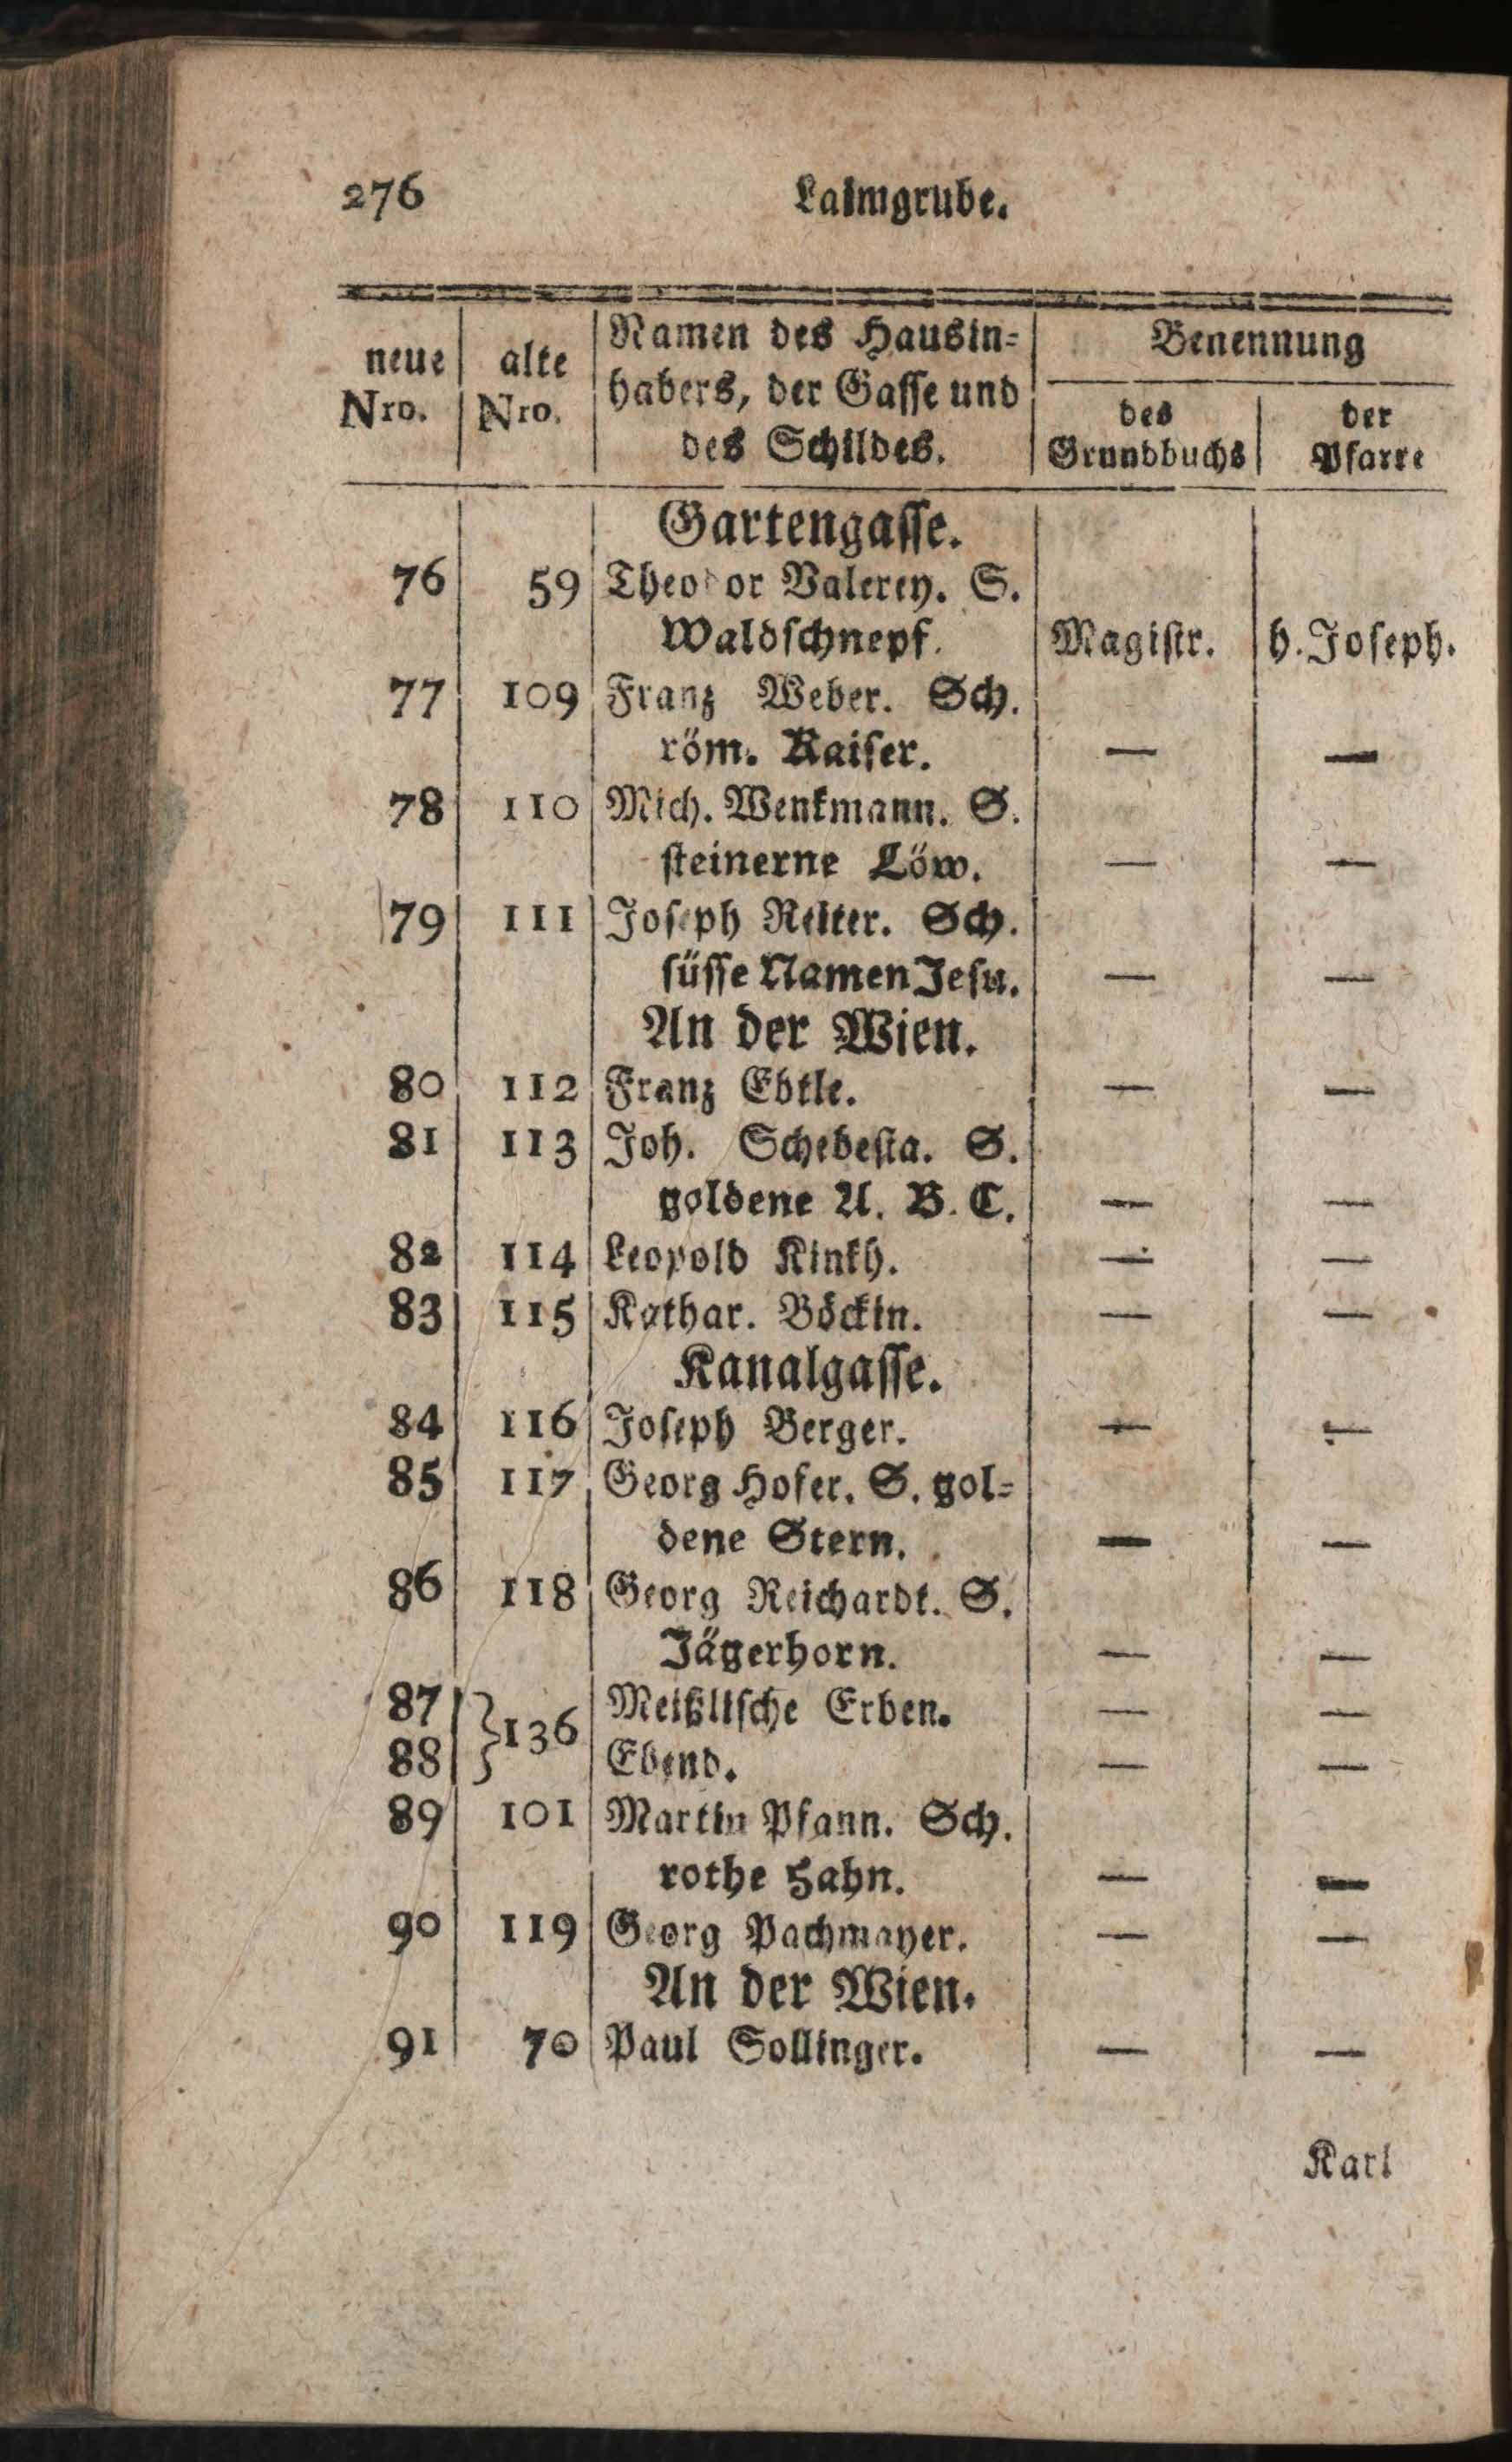 276 Laimgrube.
neue Nro. alte Nro. Namen des Hausin=
habers, der Gasse und
des Schildes. Benennung
des Grundbuchs der Pfarre
Gartengasse.
76 59 Theodor Valerey. S.
Waldschnepf. Magistr. h. Joseph.
77 109 Franz Weber. Sch.
röm. Kaiser. — —
78 110 Mich. Wenkmann. S.
steinerne Löw. — —
79 111 Joseph Reiter. Sch.
süsse Namen Jesu. — —
An der Wien.
80 112 Franz Ebtle. — —
81 113 Joh. Schebesta. S.
goldene A. B. C. — —
82 114 Leopold Kinkh. — —
83 115 Kathar. Böckin. — —
Kanalgasse.
84 116 Joseph Berger. — —
85 117 Georg Hofer. S. gol=
dene Stern. — —
86 118 Georg Reichardt. S.
Jägerhorn. — —
87 }136 Meißlische Erben. — —
88 Ebend. — —
89 101 Martin Pfann. Sch.
rothe Hahn. — —
90 119 Georg Pachmayer. — —
An der Wien.
91 70 Paul Sollinger. — —
Karl